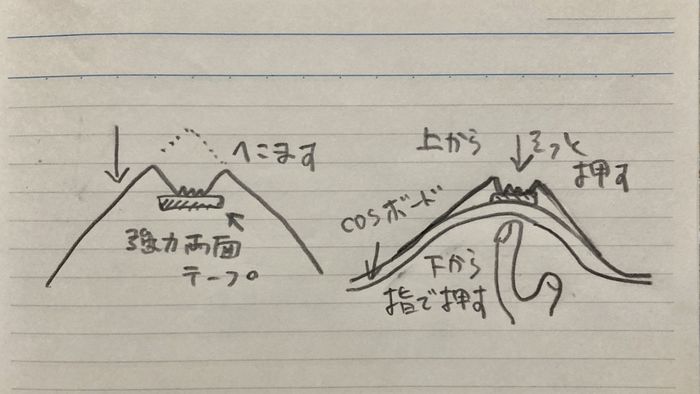 へこます
強力両面
テープ
上から
そっと
押す
COSボード
下から
指で押す